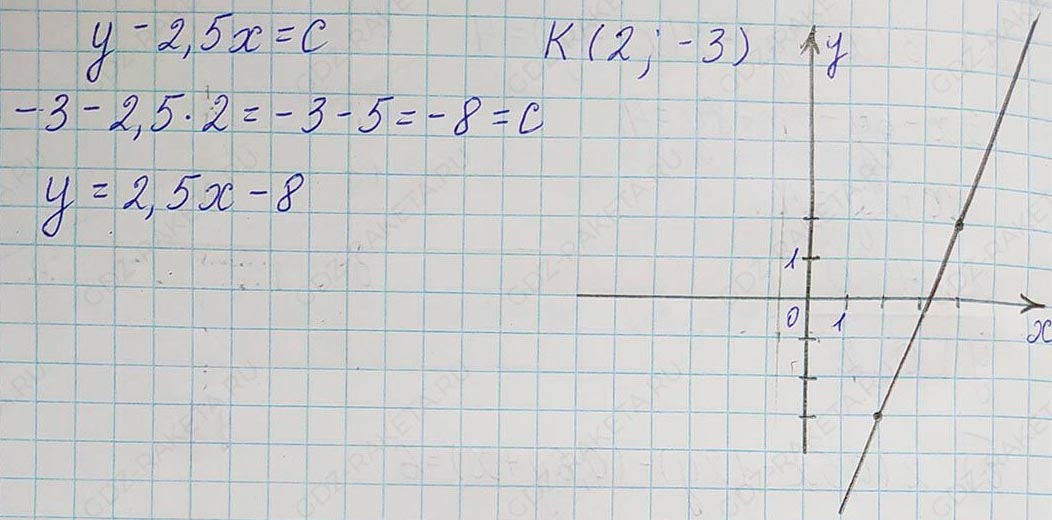 y - 2,5x = C
K(2; -3)
-3 - 2,5 · 2 = -3 - 5 = -8 = C
y = 2,5x - 8
y
1
0 1
x
GDZ-RAKETA.RU